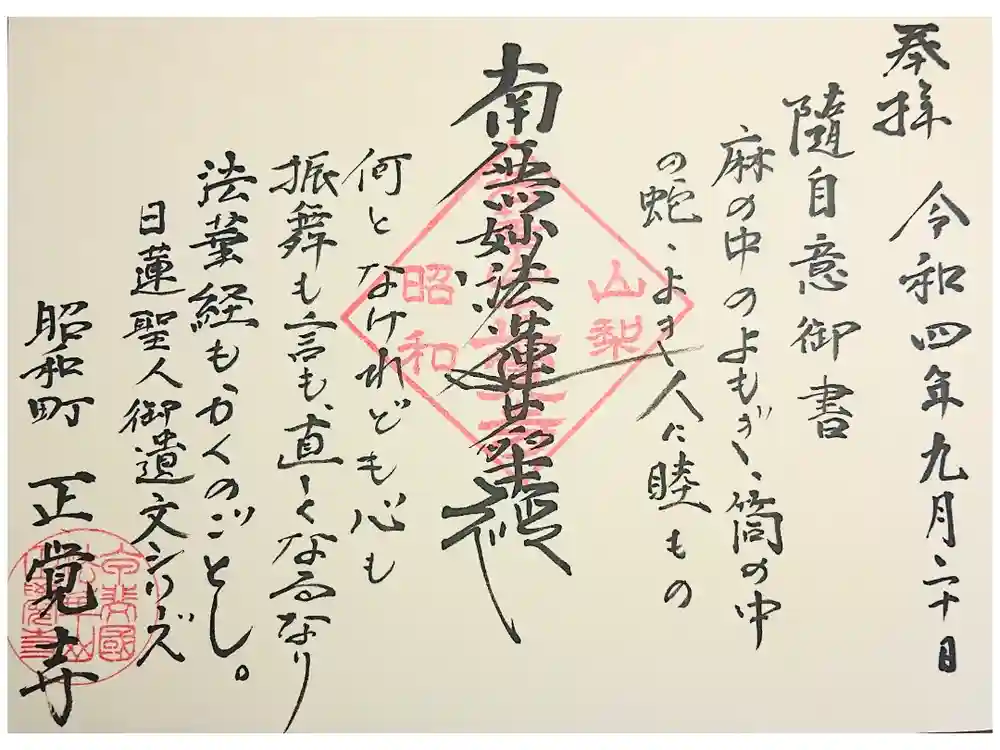 奉拝 令和四年九月二十日
随自意御書
麻の中のよもぎ、筒の中
の蛇、よき人に睦もの
南無妙法蓮華経
何となけれども心も
振舞も言も、直しくなるなり
法華経もかくのごとし。
日蓮聖人御遺文シリーズ
昭和町 正覚寺
山梨
昭和